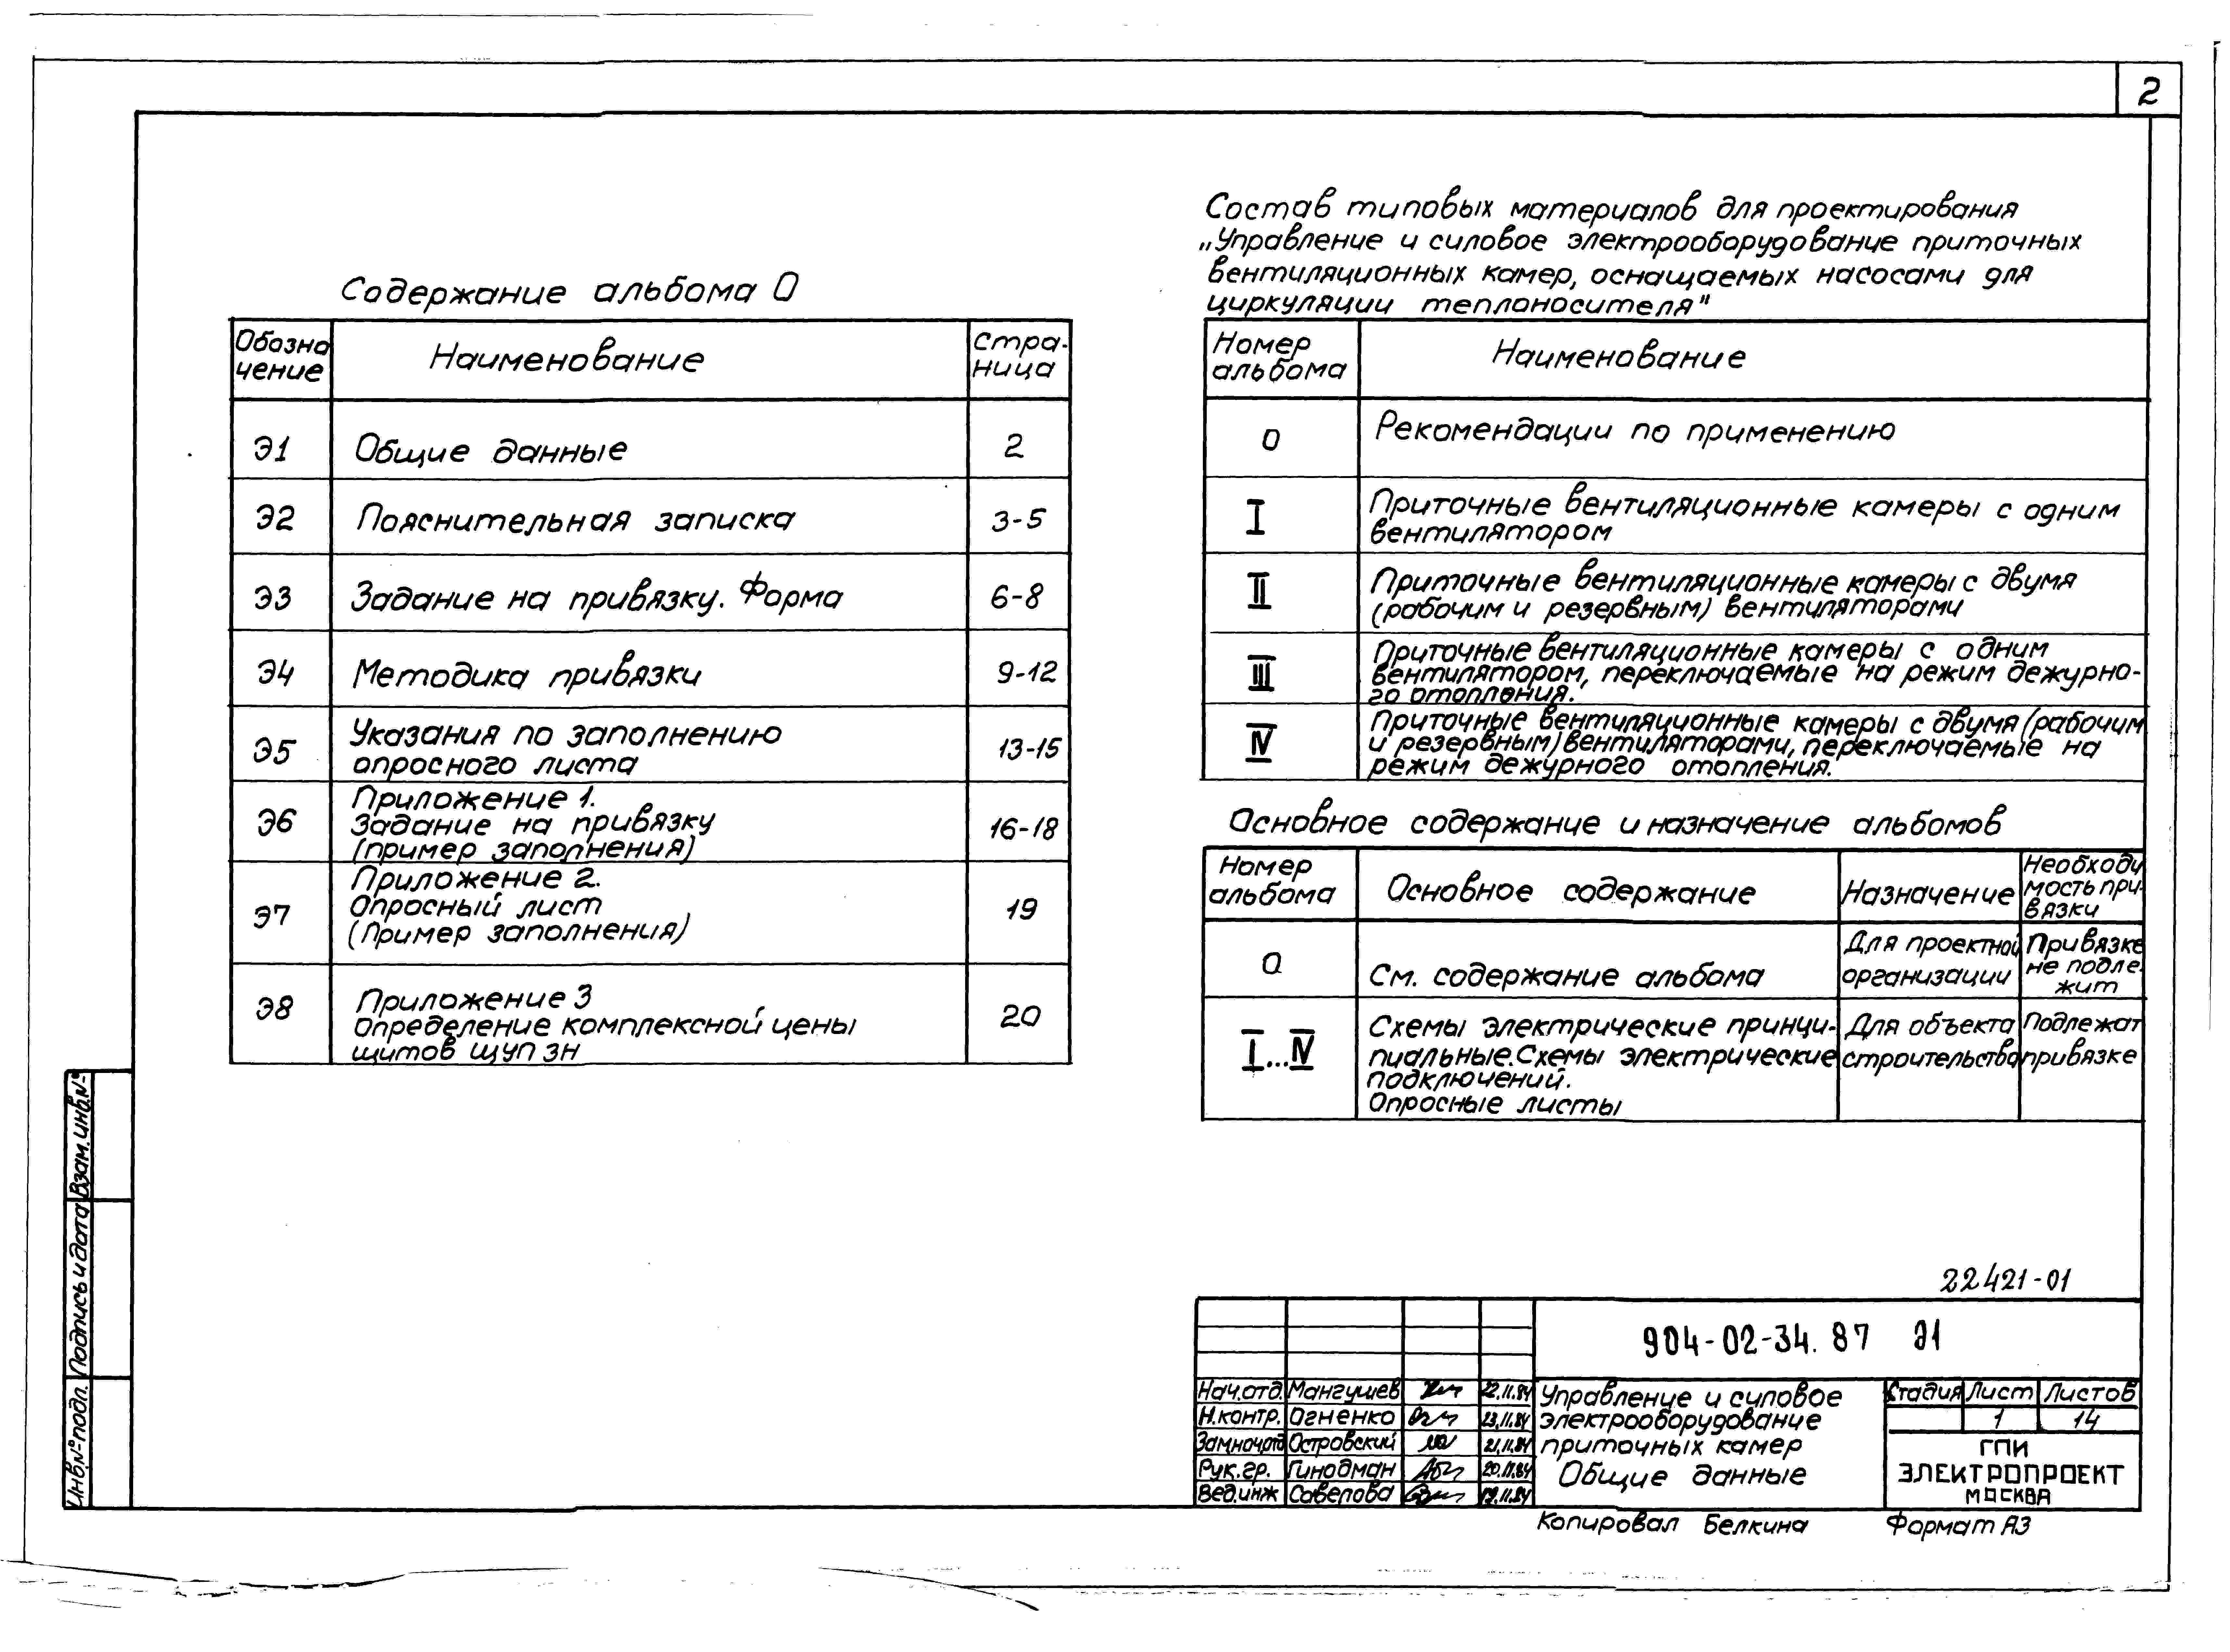 2
Содержание альбома 0
Обозна
чение
Наименование
Стра-
ница
Э1
Общие данные
2
Э2
Пояснительная записка
3-5
Э3
Задание на привязку. Форма
6-8
Э4
Методика привязки
9-12
Э5
Указания по заполнению
опросного листа
13-15
Э6
Приложение 1.
Задание на привязку
(пример заполнения)
16-18
Э7
Приложение 2.
Опросный лист
(Пример заполнения)
19
Э8
Приложение 3
Определение комплексной цены
щитов ЩУПЗН
20
Состав типовых материалов для проектирования
„Управление и силовое электрооборудование приточных
вентиляционных камер, оснащаемых насосами для
циркуляции теплоносителя"
Номер
альбома
Наименование
0
Рекомендации по применению
I
Приточные вентиляционные камеры с одним
вентилятором
II
Приточные вентиляционные камеры с двумя
(рабочим и резервным) вентиляторами
III
Приточные вентиляционные камеры с одним
вентилятором, переключаемые на режим дежурно-
го отопления.
IV
Приточные вентиляционные камеры с двумя (рабочим
и резервным) вентиляторами, переключаемые на
режим дежурного отопления.
Основное содержание и назначение альбомов
Номер
альбома
Основное содержание
Назначение
Необходи
мость при-
вязки
0
См. содержание альбома
Для проектной
организации
Привязке
не подле-
жит
I...IV
Схемы электрические принци-
пиальные. Схемы электрические
подключений.
Опросные листы
Для объекта
строительства
Подлежат
привязке
22421-01
904-02-34.87 Э1
Нач.отд. Мангушев 22.11.84
Н.контр. Огненко 23.11.84
Замначотд Островский 21.11.84
Рук.гр. Гинодман 20.11.84
Вед.инж Савелова 19.11.84
Управление и силовое
электрооборудование
приточных камер
Общие данные
Стадия Лист Листов
1 14
ГПИ
ЭЛЕКТРОПРОЕКТ
МОСКВА
Копировал Белкина Формат А3
Взам.инв.№
Подпись и дата
Инв.№ подл.